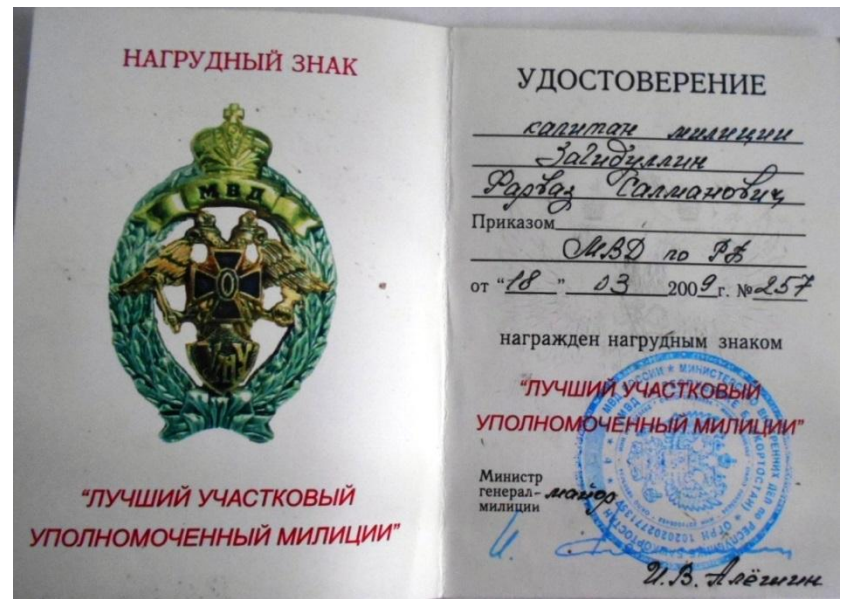 НАГРУДНЫЙ ЗНАК
МВД
УПУ
"ЛУЧШИЙ УЧАСТКОВЫЙ
УПОЛНОМОЧЕННЫЙ МИЛИЦИИ"
УДОСТОВЕРЕНИЕ
капитан милиции
Загидуллин
Фарваз Салманович
Приказом
МВД по РБ
от "18" 03 2009 г. № 257
награжден нагрудным знаком
"ЛУЧШИЙ УЧАСТКОВЫЙ
УПОЛНОМОЧЕННЫЙ МИЛИЦИИ"
Министр
генерал-майор
милиции
И.В. Алёшин